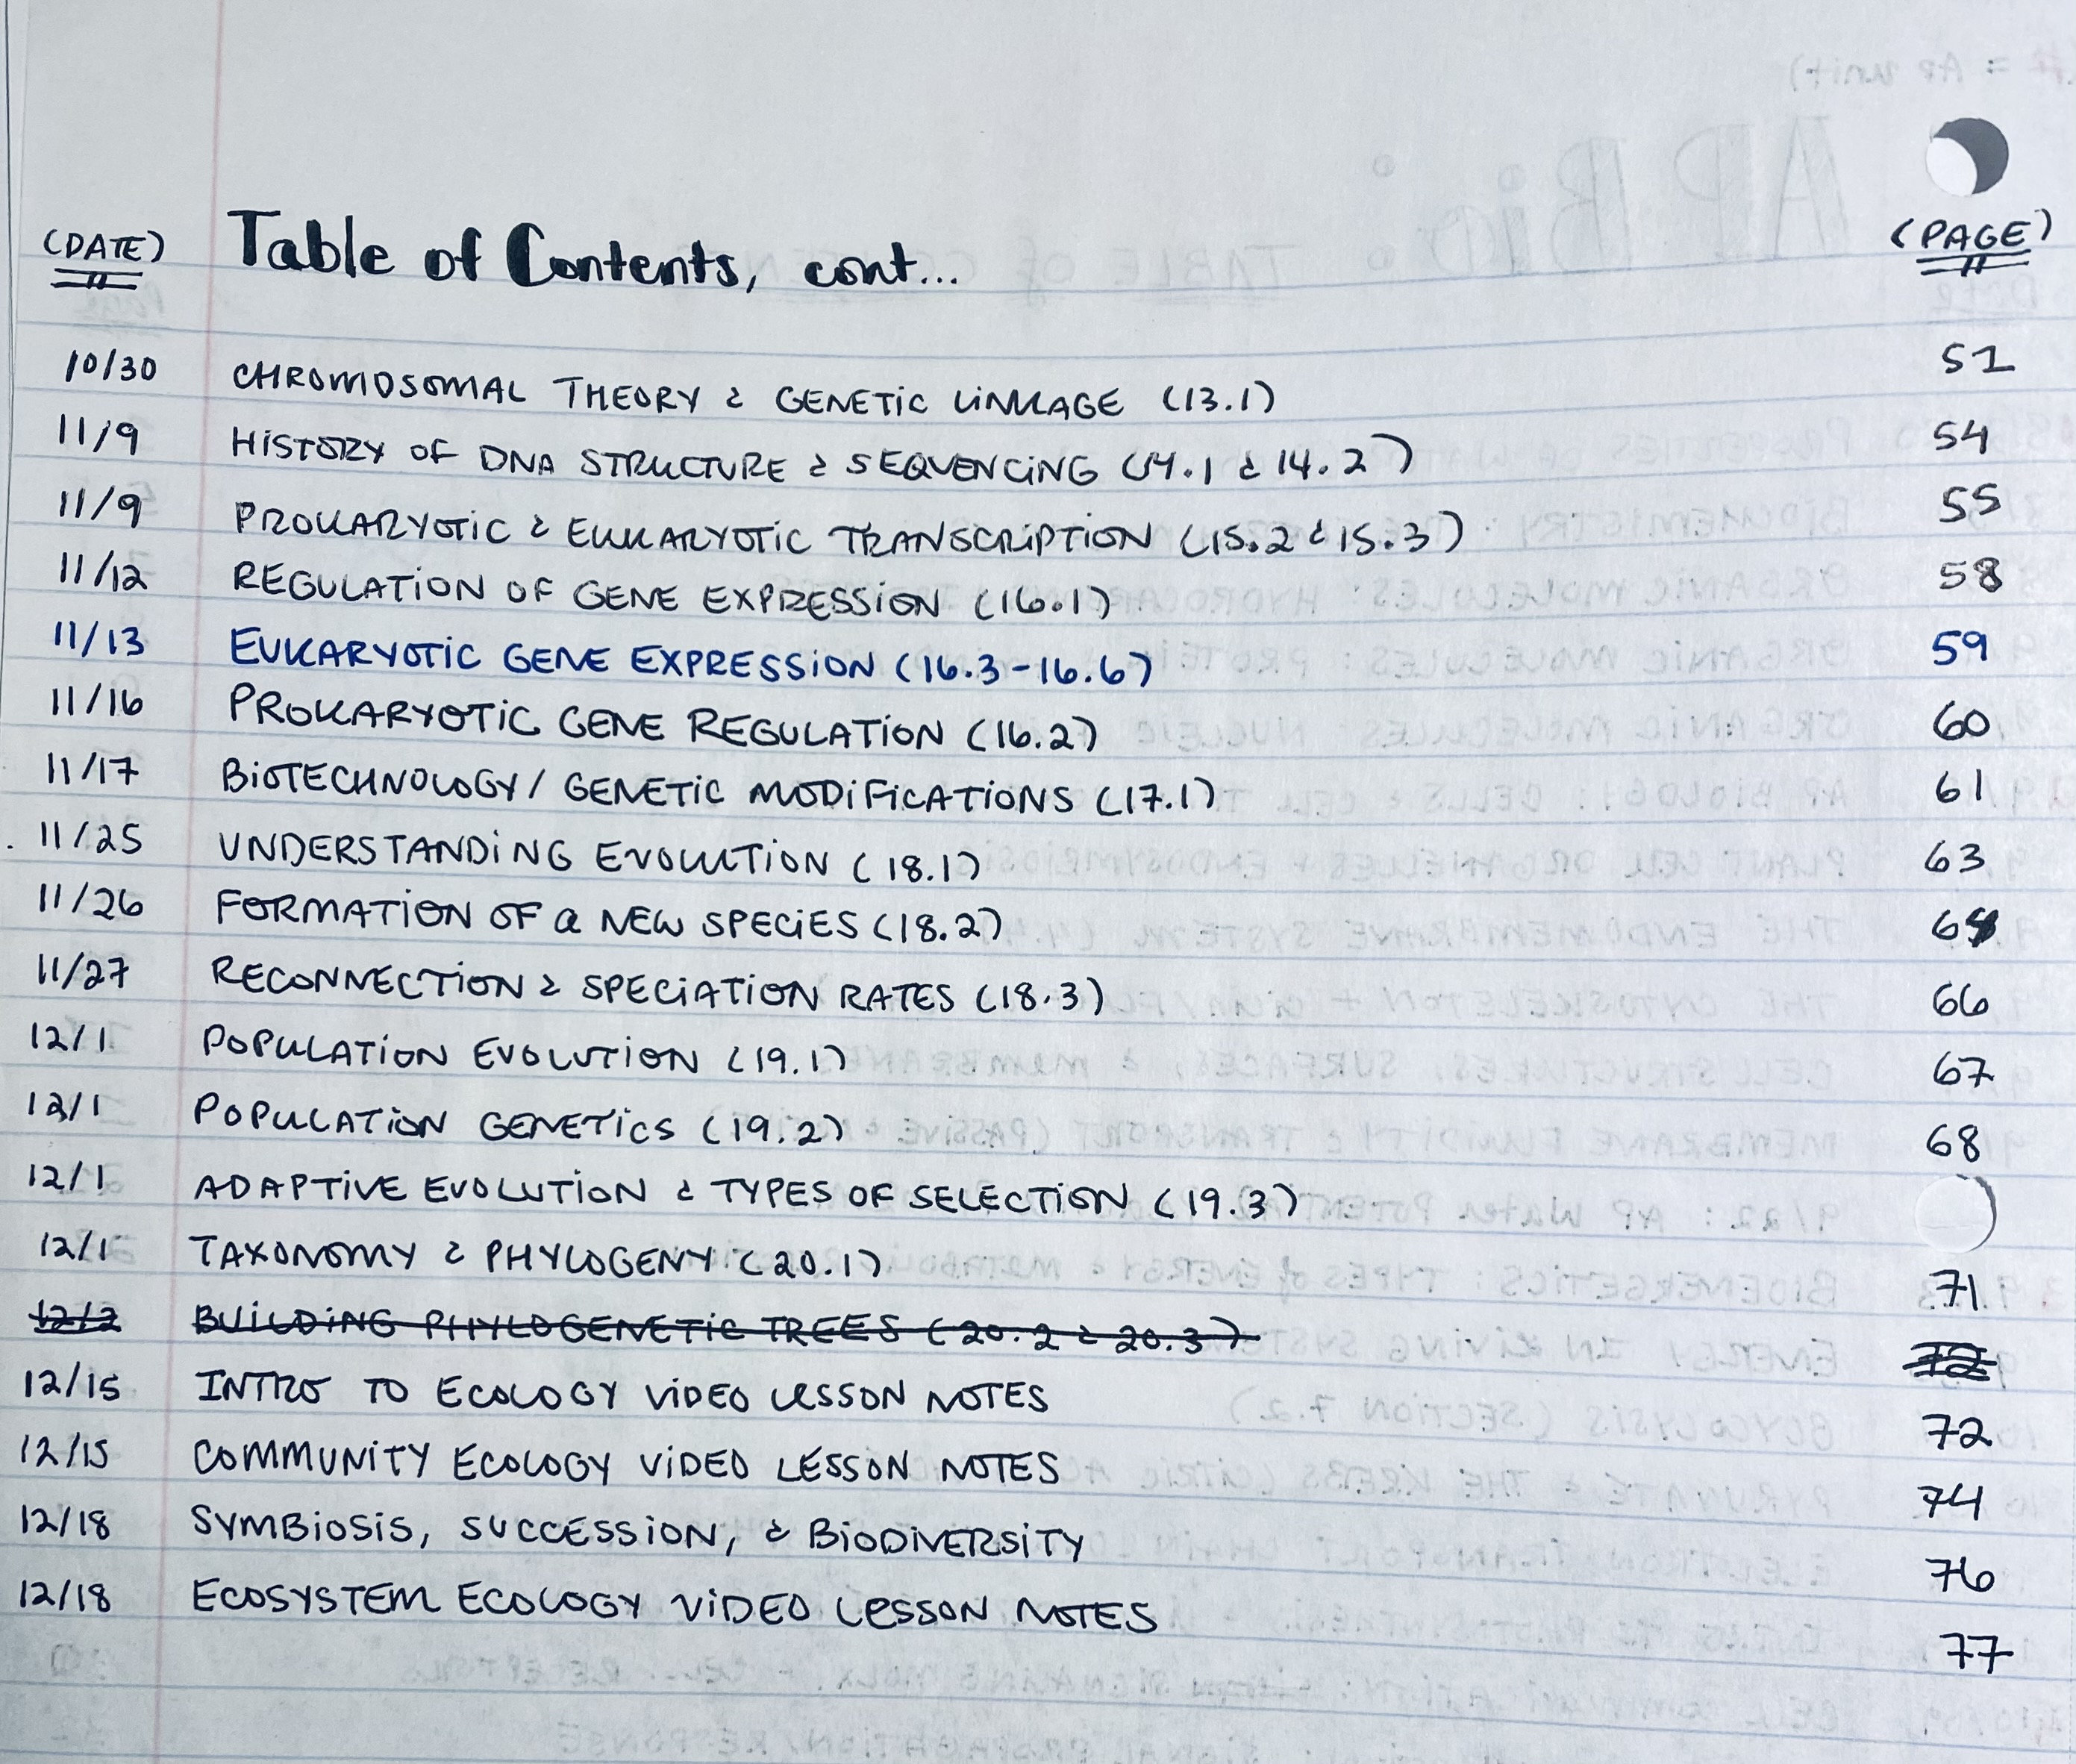 (DATE) Table of Contents, cont... (PAGE)
10/30 CHROMOSOMAL THEORY & GENETIC LINKAGE (13.1) 51
11/9 HISTORY OF DNA STRUCTURE & SEQUENCING (14.1 & 14.2) 54
11/9 PROKARYOTIC & EUKARYOTIC TRANSCRIPTION (15.2 & 15.3) 55
11/12 REGULATION OF GENE EXPRESSION (16.1) 58
11/13 EUKARYOTIC GENE EXPRESSION (16.3-16.6) 59
11/16 PROKARYOTIC GENE REGULATION (16.2) 60
11/17 BIOTECHNOLOGY/GENETIC MODIFICATIONS (17.1) 61
11/25 UNDERSTANDING EVOLUTION (18.1) 63
11/26 FORMATION OF a NEW SPECIES (18.2)
11/27 RECONNECTION & SPECIATION RATES (18.3) 66
12/1 POPULATION EVOLUTION (19.1) 67
12/1 POPULATION GENETICS (19.2) 68
12/1 ADAPTIVE EVOLUTION & TYPES OF SELECTION (19.3)
12/1 TAXONOMY & PHYLOGENY (20.1) 71
12/2 BUILDING PHYLOGENETIC TREES (20.2 & 20.3) 72
12/15 INTRO TO ECOLOGY VIDEO LESSON NOTES 72
12/15 COMMUNITY ECOLOGY VIDEO LESSON NOTES 74
12/18 SYMBIOSIS, SUCCESSION, & BIODIVERSITY 76
12/18 ECOSYSTEM ECOLOGY VIDEO LESSON NOTES 77